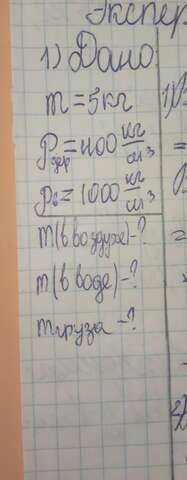 Экспер
1) Дано:
m = 5 кг
ρдер = 400 кг/м³
ρв = 1000 кг/м³
m(в воздухе) - ?
m(в воде) - ?
m груза - ?